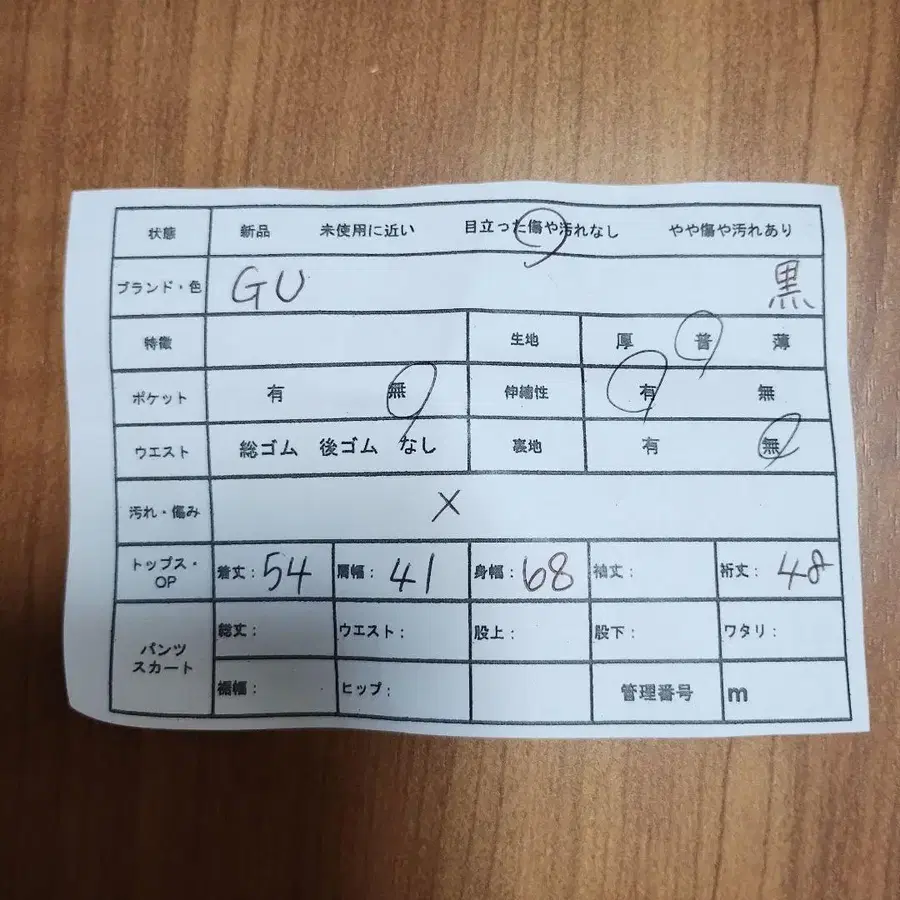 状態 新品 未使用に近い 目立った傷や汚れなし やや傷や汚れあり
ブランド・色 GU 黒
特徴 生地 厚 普 薄
ポケット 有 無 伸縮性 有 無
ウエスト 総ゴム 後ゴム なし 裏地 有 無
汚れ・傷み X
トップス・OP 着丈: 54 肩幅: 41 身幅: 68 袖丈: 裄丈: 48
パンツ スカート 総丈: ウエスト: 股上: 股下: ワタリ:
裾幅: ヒップ: 管理番号 m